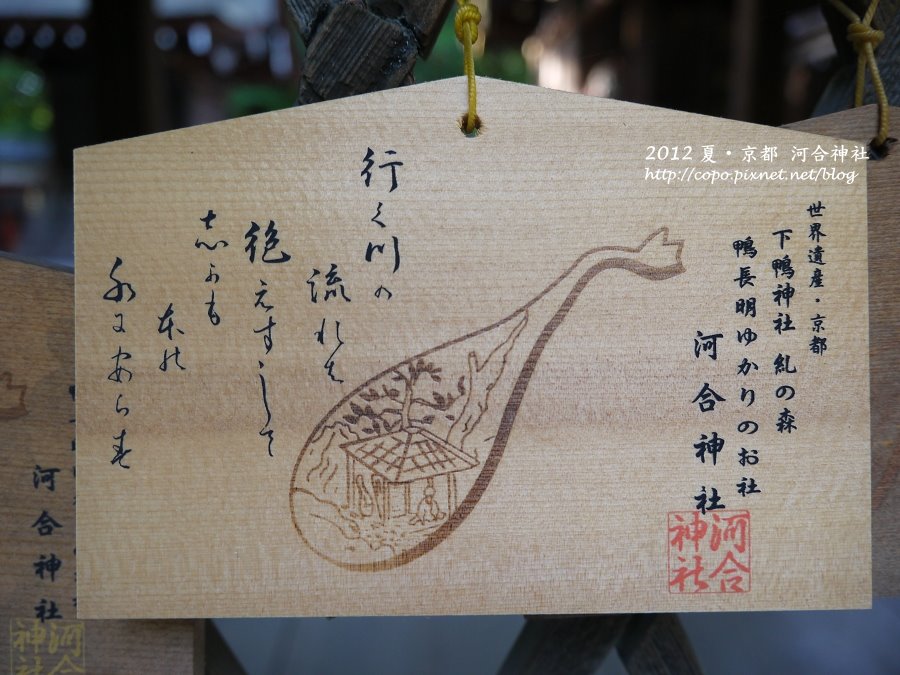 2012 夏・京都 河合神社
http://copo.pixnet.net/blog
世界遺産・京都
下鴨神社 糺の森
鴨長明ゆかりのお社
河合神社
河合
神社
行く川の
流れは
絶えすして
志かも
本の
水にあらす
河合神社
河合
神社